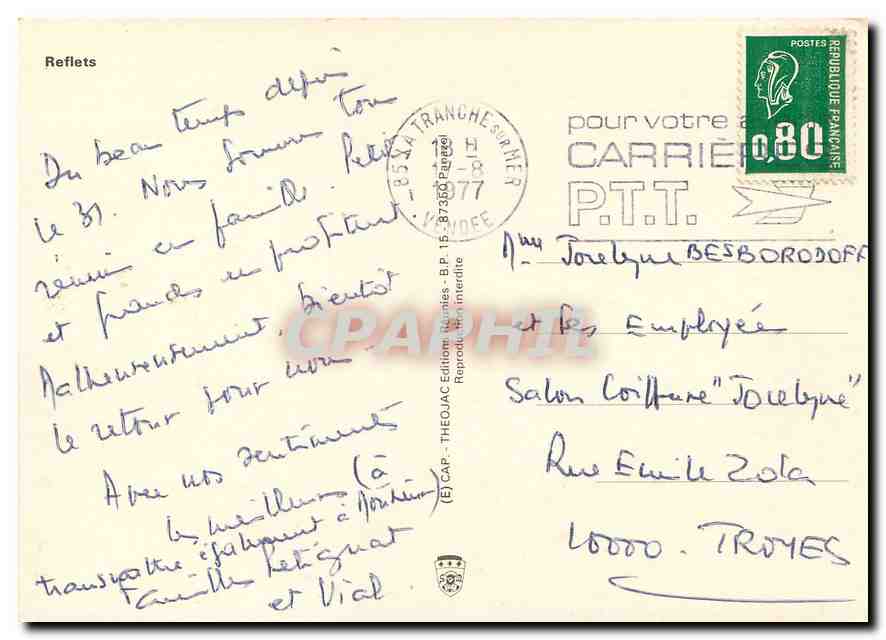 Reflets
Du beau temps depuis
le 31. Nous sommes tous
réunis en famille. Petits
et grands en profitent.
Malheureusement, bientôt
le retour pour nous.
Avec nos sentiments
les meilleurs (à
transmettre également à Monsieur)
Familles
et Vial.
(E) CAP. - THEOJAC Editions Réunies - B.P. 15 - 87350 Panazol
Reproduction interdite
85 LA TRANCHE SUR MER
18 H
-8
1977
VENDEE
pour votre
CARRIÈRE
P.T.T.
POSTES
REPUBLIQUE FRANÇAISE
0,80
Mme Jocelyne BESBORODOFF
et ses Employées
Salon Coiffure "Jocelyne"
Rue Emile Zola
10000. TROYES
CPAPHIL